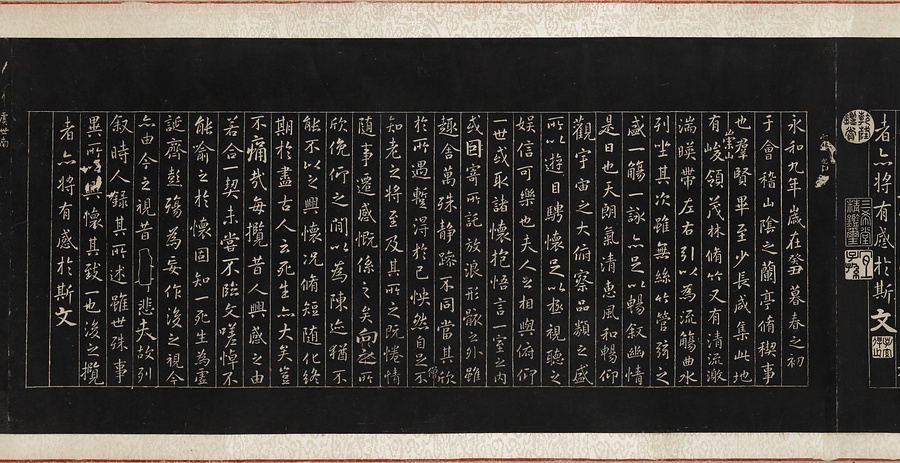 者亦将有感於斯文
永和九年歲在癸丑暮春之初
于會稽山陰之蘭亭脩稧事
也羣賢畢至少長咸集此地
崇山
有峻領茂林脩竹又有清流激
湍暎帶左右引以為流觴曲水
列坐其次雖無絲竹管弦之
盛一觴一詠亦足以暢叙幽情
是日也天朗氣清惠風和暢仰
觀宇宙之大俯察品類之盛
所以遊目騁懷足以極視聽之
娛信可樂也夫人之相與俯仰
一世或取諸懷抱悟言一室之内
或因寄所託放浪形骸之外雖
趣舍萬殊静躁不同當其欣
於所遇蹔得於己怏然自足不
知老之将至及其所之既惓情
隨事遷感慨係之矣向之所
欣俛仰之間以為陳迹猶不
能不以之興懷況脩短隨化終
期於盡古人云死生亦大矣豈
不痛哉每攬昔人興感之由
若合一契未嘗不臨文嗟悼不
能喻之於懷固知一死生為虛
誕齊彭殤為妄作後之視今
亦由今之視昔悲夫故列
叙時人録其所述雖世殊事
異所以興懷其致一也後之攬
者亦将有感於斯文
虞世南